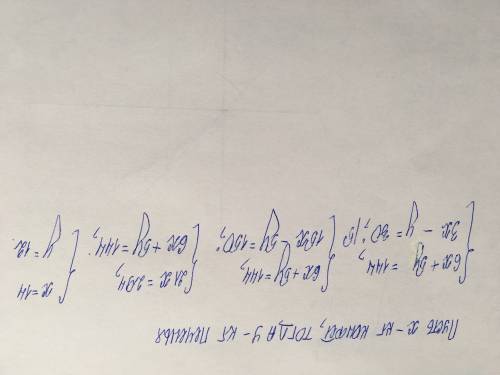 Пусть x – кг конфет, тогда y – кг печенья
{ 6x + 5y = 144,
{ 3x – y = 30; |·5
{ 6x + 5y = 144,
{ 15x – 5y = 150;
{ 21x = 294,
{ 6x + 5y = 144;
{ x = 14
{ y = 12.